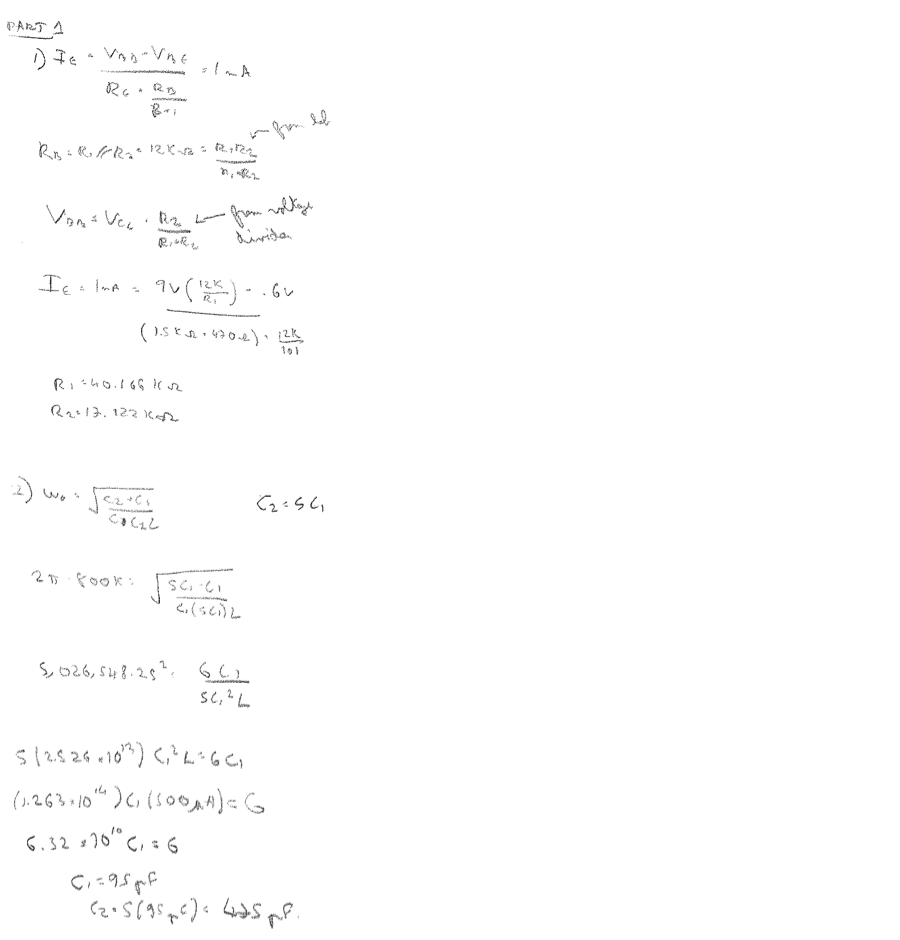 PART 1
1) IE = VBB - VBE / RE + RB / β+1 = 1mA
RB = R1//R2 = 12KΩ = R1R2 / R1+R2 from
VBB = VCC · R2 / R1+R2 from voltage divider
IE = 1mA = 9V (12K / R1) - .6V / (1.5KΩ + 470Ω) + 12K / 101
R1 = 40.166 KΩ
R2 = 17.122 KΩ
2) ω0 = √ C2+C1 / C1C2L C2 = 5C1
2π · 800K = √ 5C1+C1 / C1(5C1)L
5,026,548.25² = 6C1 / 5C1²L
5(2.526×10¹³) C1²L = 6C1
(1.263×10¹⁴) C1 (500μH) = 6
6.32×10¹⁰ C1 = 6
C1 = 95pF
C2 = 5(95pF) = 475pF.